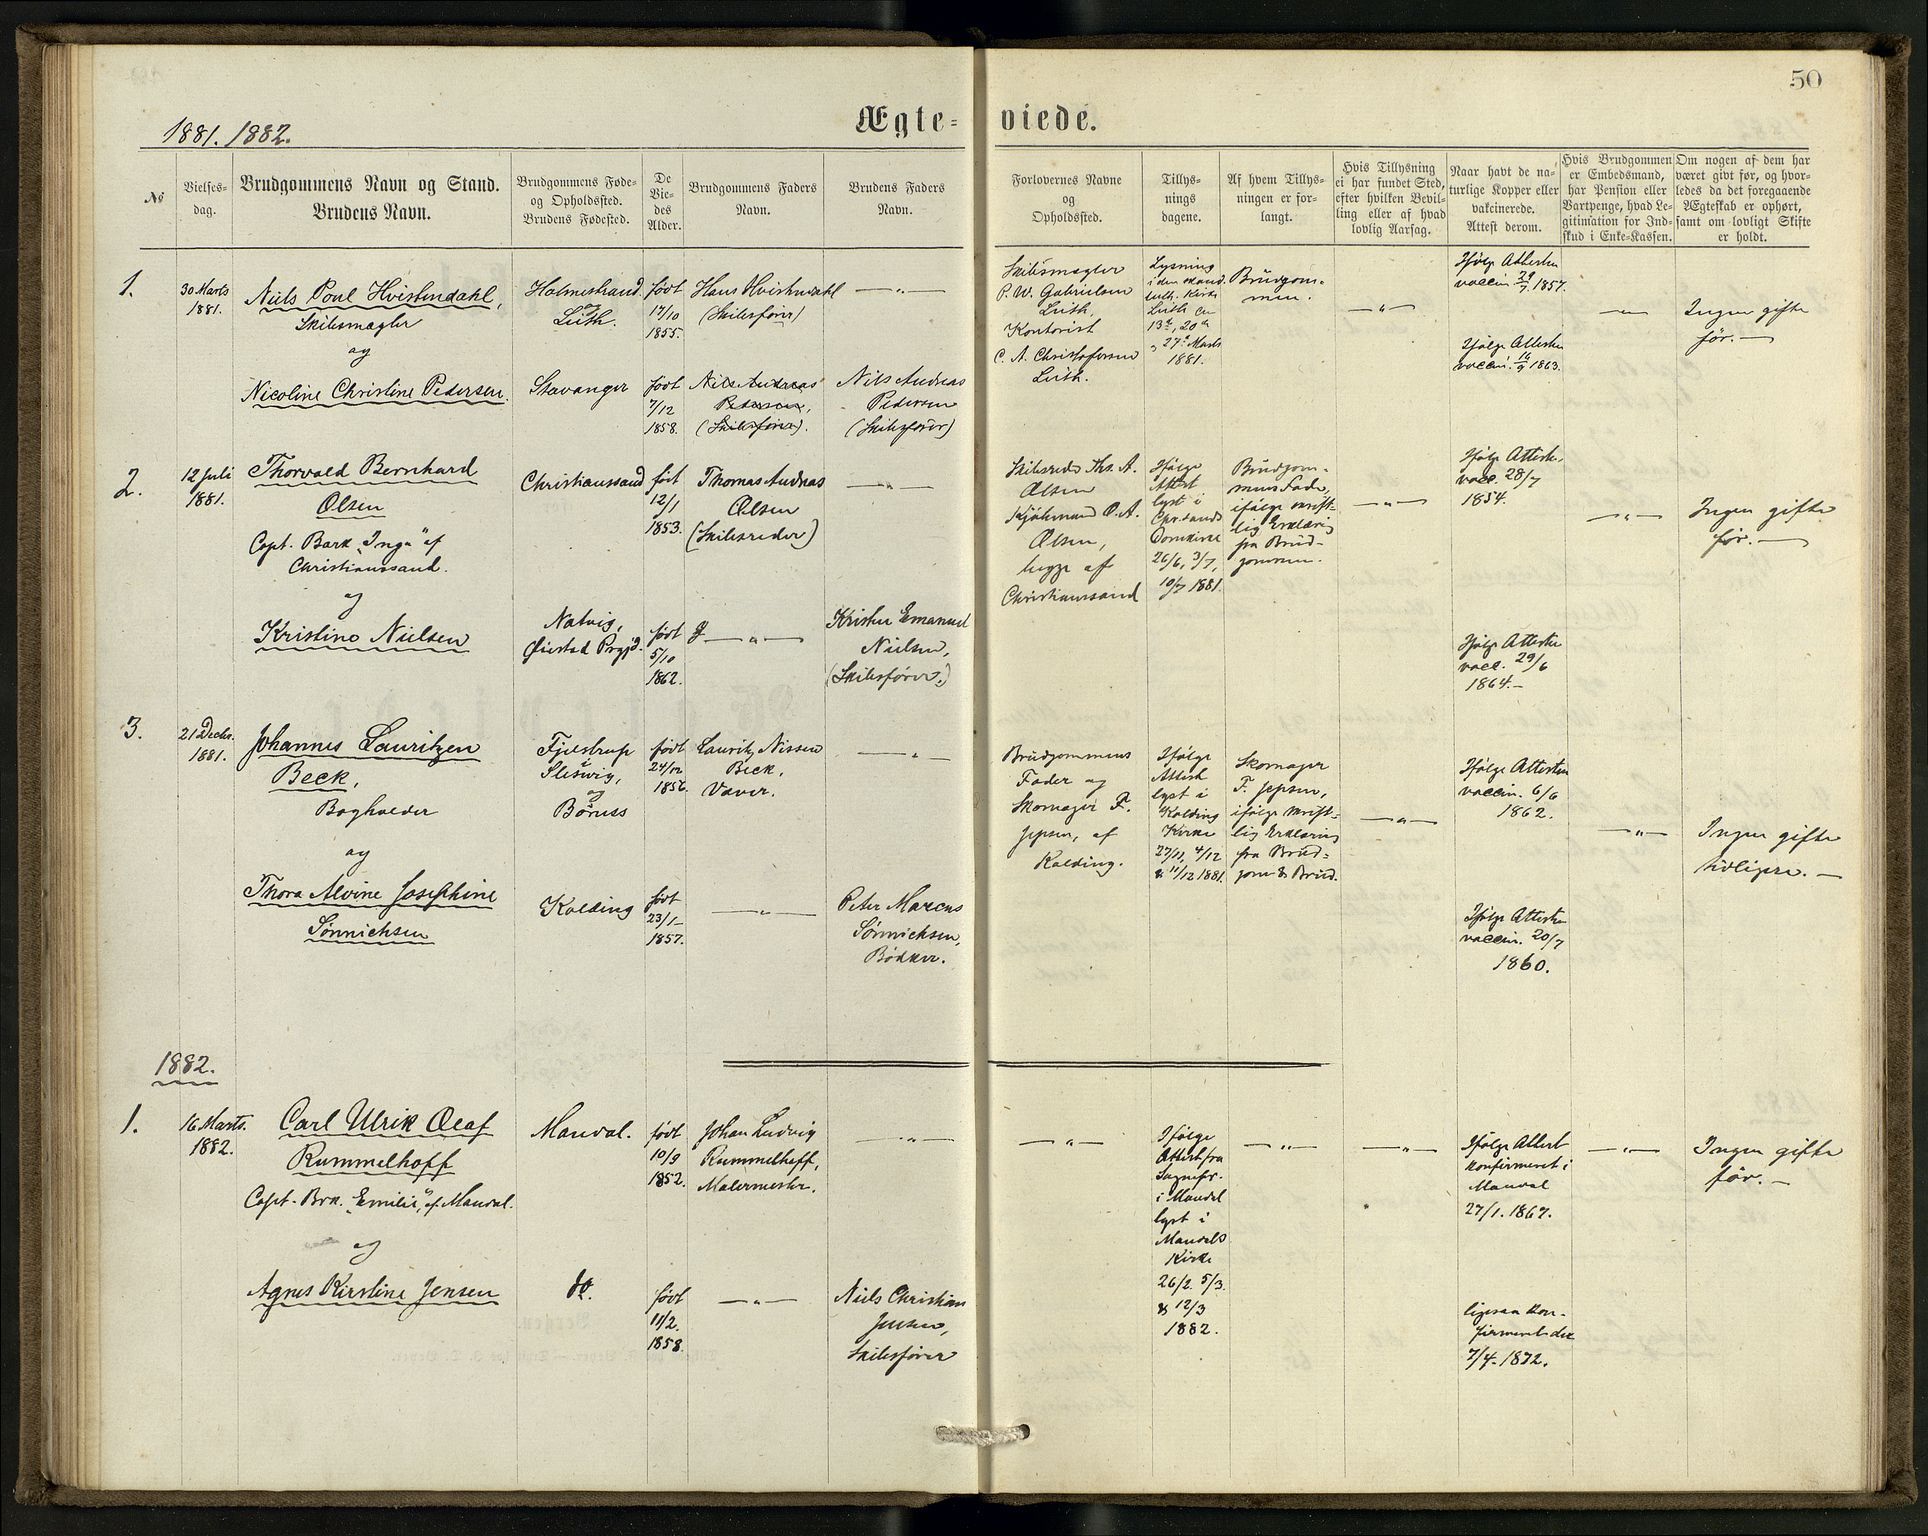 50
Ægte-viede.
1881. 1882.
No
Vielses-
dag.
Brudgommens Navn og Stand.
Brudens Navn.
Brudgommens Føde-
og Opholdssted.
Brudens Fødested.
De
Vie-
des
Alder.
Brudgommens Faders
Navn.
Brudens Faders
Navn.
Forlovernes Navne
og
Opholdssted.
Tillys-
nings
dagene.
Af hvem Tillys-
ningen er for-
langt.
Hvis Tillysning
ei har fundet Sted,
efter hvilken Bevil-
ling eller af hvad
lovlig Aarsag.
Naar havt de na-
turlige Kopper eller
vakcinerede.
Attest derom.
Hvis Brudgommen
er Embedsmand,
har Pension eller
Vartpenge, hvad Le-
gitimation for Ind-
skud i Enke-Kassen.
Om nogen af dem har
været givt før, og hvor-
ledes da det foregaaende
Ægteskab er ophørt,
samt om lovligt Skifte
er holdt.
1.
30 Marts
1881.
Niels Poul Hvistendahl,
Skibsmægler
og
Nicoline Christine Pedersen.
Holmestrand
og
Leith.
Stavanger
født
17/10
1855.
født
7/12
1858.
Hans Hvistendahl
(Skibsfører)
Nils Andreas
Pedersen,
(Skibsfører).
— " —
Nils Andreas
Pedersen
(Skibsfører)
Skibsmægler
P. W. Gabrielsen
Leith,
Kontorist
C. A. Christofersen
Leith.
Lysning
i den skand.
luth. Kirke
Leith den
13de, 20de
" 27de Marts
1881.
Brudgom-
men.
— " —
Ifølge Attester
vaccin 29/7 1857.
Ifølge Attester
vaccin. 16/9 1863.
— " —
Ingen gifte
før. —
2.
12 Juli
1881.
Thorvald Bernhard
Olsen
Capt. Bark "Inga" af
Christianssand.
og
Kristine Nielsen
Christianssand
Natvig,
Øiestad Prgjd.
født
12/1
1853.
født
5/10
1862.
Thomas Andreas
Olsen
(Skibsreder)
— " —
— " —
Kristen Emanuel
Nielsen,
(Skibsfører.)
Skibsreder Ths. A.
Olsen
Kjøbmand O. A.
Olsen,
begge af
Christianssand
Ifølge
Attest
lyst i
Chr.sands
Domkirke
26/6, 3/7,
10/7 1881.
Brudgom-
mens Fader,
ifølge skrift-
lig Erklæring
fra Brud-
gommen.
— " —
Ifølge Attester,
vacc. 28/7
1854.
Ifølge Attester
vacc. 29/6
1864. —
— " —
Ingen gifte
før. —
3.
21 Decbr.
1881.
Johannes Lauritzen
Beck,
Bogholder
og
Thora Alvine Josephine
Sönnichsen
Fjelstrup
i
Slesvig,
og
Böness
Kolding
født
24/12
1856.
født
23/1
1857.
Lauritz Nissen
Beck,
Væver.
— " —
— " —
Peter Marcus
Sönnichsen,
Bødker.
Brudgommens
Fader og
Skomager F.
Jepsen, af
Kolding.
Ifølge
Attest
lyst i
Kolding
Kirke
27/11, 4/12
& 11/12 1881.
Skomager
F. Jepsen,
ifølge skrift-
lig Erklæring
fra Brud-
gom & Brud.
— " —
Ifølge Attesten
vaccin. 6/6
1862.
Ifølge Attester
vaccin. 20/7
1860.
— " —
Ingen gifte
tidligere. —
1882.
1.
16 Marts.
1882.
Carl Ulrik Olaf
Rummelhoff
Capt. Brk. "Emilie", af Mandal.
og
Agnes Kirstine Jensen
Mandal.
do.
født
10/9
1852.
født
11/2.
1858.
Johan Ludvig
Rummelhoff,
Malermester.
— " —
— " —
Niels Christian
Jensen,
Skibsfører
— " —
Ifølge
Attest fra
Sognepr.
i Mandal
lyst i
Mandals
Kirke
26/2. 5/3.
& 12/3
1882.
— " —
— " —
Ifølge Attest
konfirmeret i
Mandal
27/1. 1867.
ligesaa kon-
firmeret der
7/4. 1872.
— " —
Ingen gifte
før. —